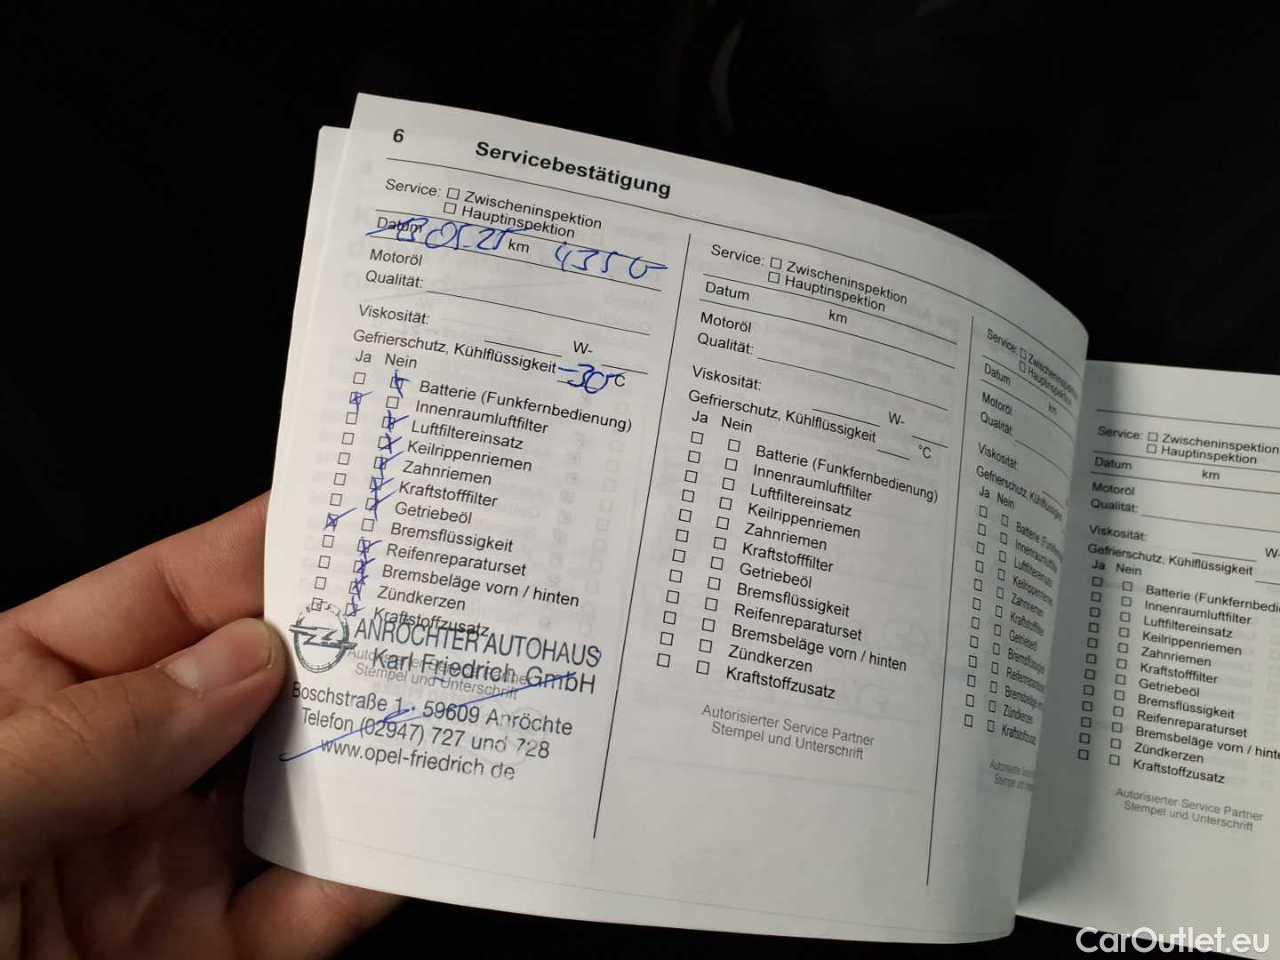 6 Servicebestätigung
Service: Zwischeninspektion
Hauptinspektion
Datum 05.25 km 4350
Motoröl
Qualität:
Viskosität:
W-
Gefrierschutz, Kühlflüssigkeit -30 °C
Ja Nein
Batterie (Funkfernbedienung)
Innenraumluftfilter
Luftfiltereinsatz
Keilrippenriemen
Zahnriemen
Kraftstofffilter
Getriebeöl
Bremsflüssigkeit
Reifenreparaturset
Bremsbeläge vorn / hinten
Zündkerzen
Kraftstoffzusatz
ANRÖCHTER AUTOHAUS
Karl Friedrich GmbH
Autorisierter Service Partner
Stempel und Unterschrift
Boschstraße 1 · 59609 Anröchte
Telefon (02947) 727 und 728
www.opel-friedrich.de
Service: Zwischeninspektion
Hauptinspektion
Datum km
Motoröl
Qualität:
Viskosität:
W-
Gefrierschutz, Kühlflüssigkeit
°C
Ja Nein
Batterie (Funkfernbedienung)
Innenraumluftfilter
Luftfiltereinsatz
Keilrippenriemen
Zahnriemen
Kraftstofffilter
Getriebeöl
Bremsflüssigkeit
Reifenreparaturset
Bremsbeläge vorn / hinten
Zündkerzen
Kraftstoffzusatz
Autorisierter Service Partner
Stempel und Unterschrift
Service: Zwischeninspektion
Hauptinspektion
Datum km
Motoröl
Qualität:
Viskosität:
Gefrierschutz, Kühlflüssigkeit
Ja Nein
Batterie
Innenraumluftfilter
Luftfiltereinsatz
Keilrippenriemen
Zahnriemen
Kraftstofffilter
Getriebeöl
Bremsflüssigkeit
Reifenreparaturset
Bremsbeläge
Zündkerzen
Kraftstoffzusatz
Autorisierter
Stempel und
Service: Zwischeninspektion
Hauptinspektion
Datum km
Motoröl
Qualität:
Viskosität:
W-
Gefrierschutz, Kühlflüssigkeit
Ja Nein
Batterie (Funkfernbedi
Innenraumluftfilter
Luftfiltereinsatz
Keilrippenriemen
Zahnriemen
Kraftstofffilter
Getriebeöl
Bremsflüssigkeit
Reifenreparaturset
Bremsbeläge vorn / hinten
Zündkerzen
Kraftstoffzusatz
Autorisierter Service Partner
Stempel und Unterschrift
CarOutlet.eu